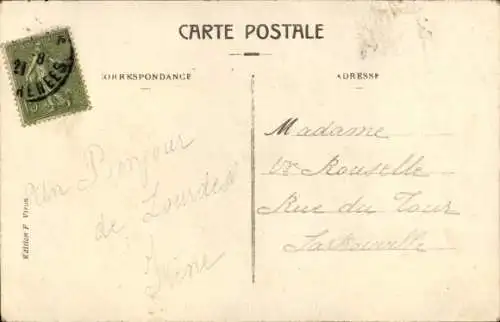 CARTE POSTALE
CORRESPONDANCE
ADRESSE
Un Bonjour
de Lourdes
Irène
Madame
Vve Rouselle
Rue du Tour
Sartrouville
Edition F. Viron